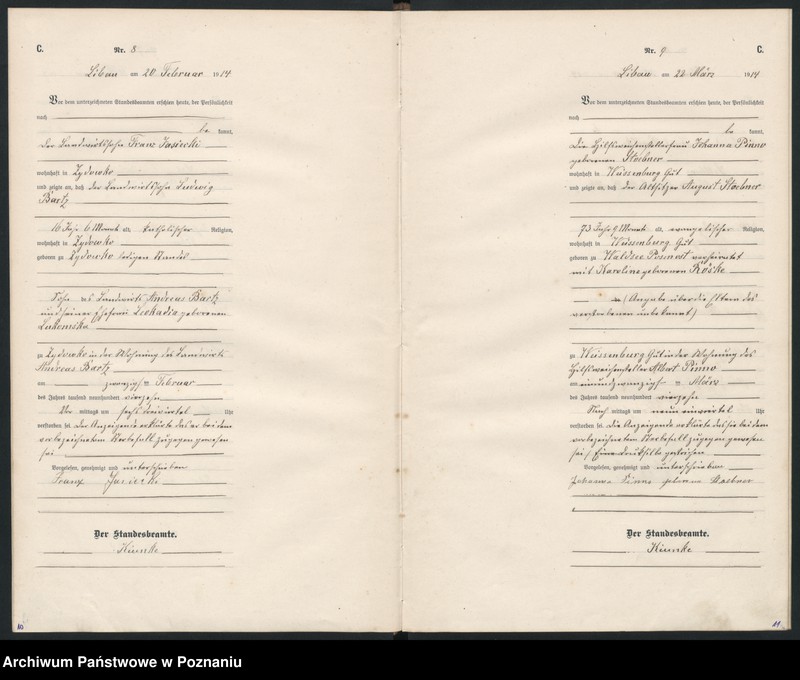 C.
Nr. 8
Libau am 20 Februar 1914
Vor dem unterzeichneten Standesbeamten erschien heute, der Persönlichkeit
nach
be kannt,
der Landwirtssohn Franz Jasiecki
wohnhaft in Zydowko
und zeigte an, daß der Landwirtssohn Ludwig
Bartz
16 Jahr 6 Monat alt, katholischer Religion,
wohnhaft in Zydowko
geboren zu Zydowko ledigen Standes
Sohn des Landwirts Andreas Bartz
und seiner Ehefrau Leokadia geborenen
Lukomska
zu Zydowko in der Wohnung des Landwirts
Andreas Bartz
am zwanzigsten Februar
des Jahres tausend neunhundert vierzehn
Vor mittags um sechs dreiviertel Uhr
verstorben sei. Der Anzeigende erklärte daß er bei dem
vorbezeichneten Sterbefall zugegen gewesen
sei
Vorgelesen, genehmigt und unterschrieben
Franz Jasiecki
Der Standesbeamte.
Kiunke
10
C.
Nr. 9
Libau am 22 März 1914
Vor dem unterzeichneten Standesbeamten erschien heute, der Persönlichkeit
nach
be kannt,
die Hilfsweichenstellerfrau Johanna Pinno
geborenen Stoebner
wohnhaft in Wüssenburg Gut
und zeigte an, daß der Altsitzer August Stoebner
73 Jahr 9 Monate alt, evangelischer Religion,
wohnhaft in Wüssenburg Gut
geboren zu Waldsee verheiratet
mit Karoline geborenen Röske
(Angabe über die Eltern des
verstorbenen unbekannt)
zu Wüssenburg Gut in der Wohnung des
Hilfsweichensteller Albert Pinno
am einundzwanzigsten März
des Jahres tausend neunhundert vierzehn
Nach mittags um neun einviertel Uhr
verstorben sei. Die Anzeigende erklärte daß sie bei dem
vorbezeichneten Sterbefall zugegen gewesen
sei. Eine Drucksilbe gestrichen
Vorgelesen, genehmigt und unterschrieben
Johanna Pinno geborene Stoebner
Der Standesbeamte.
Kiunke
11
Archiwum Państwowe w Poznaniu